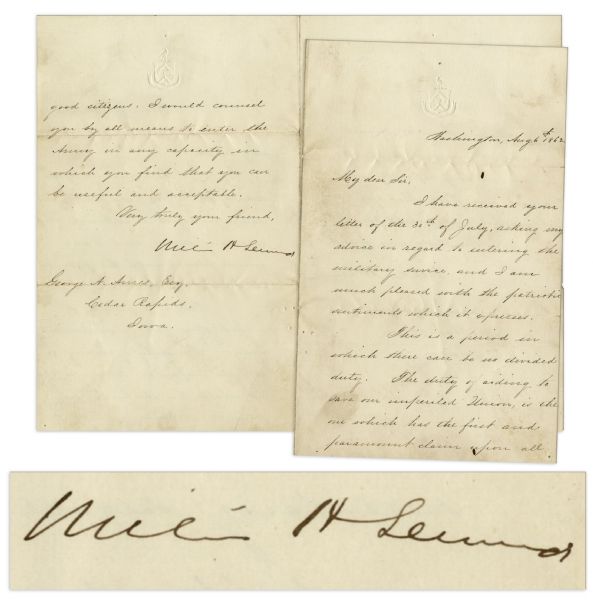 Washington, Aug 6th 1862
My dear Sir,
I have received your
letter of the 30th of July, asking my
advice in regard to entering the
military service, and I am
much pleased with the patriotic
sentiments which it expresses.
This is a period in
which there can be no divided
duty. The duty of aiding to
save our imperiled Union, is the
one which has the first and
paramount claim upon all
good citizens. I would counsel
you by all means to enter the
Army in any capacity in
which you find that you can
be useful and acceptable.
Very truly your friend,
William H Seward
George N. Ames, Esq.
Cedar Rapids.
Iowa.
William H Seward